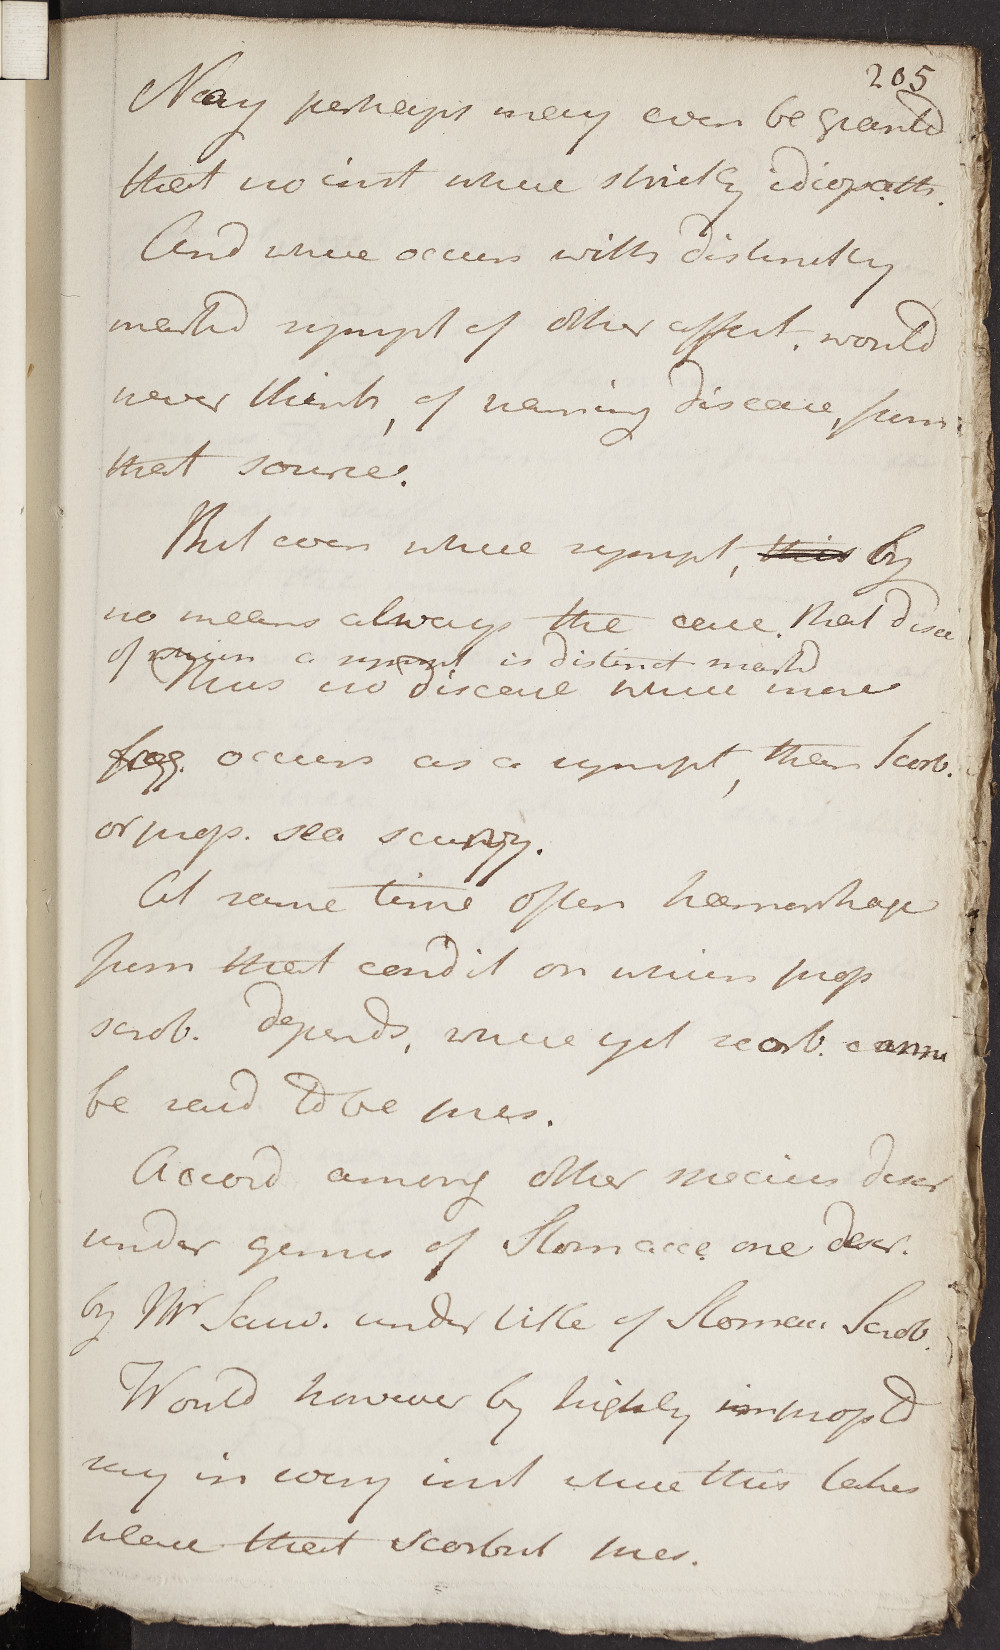 205
Nay perhaps may even be grantd
that no inst where strictly idiopath.
And where occurs with distinctly
markd sympt of other affect. would
never think, of naming disease, from
that source.
But even where sympt, this by
no means always the case. that disea
of which a sympt is distinct markd
Thus no disease where more
freq. occurs as a sympt, than Scorb.
or prop. sea scurvy.
At same time often haemorrhage
from that condit on which prop
scrob. depends, where yet scorb. canno
be said to be pres.
Accord among other species descr
under genus of Stomacace one descr.
by Mr Sauv. under title of Stomac. Scrob.
Would however by highly impropr to
say in every inst where this takes
place that scorbut pres.